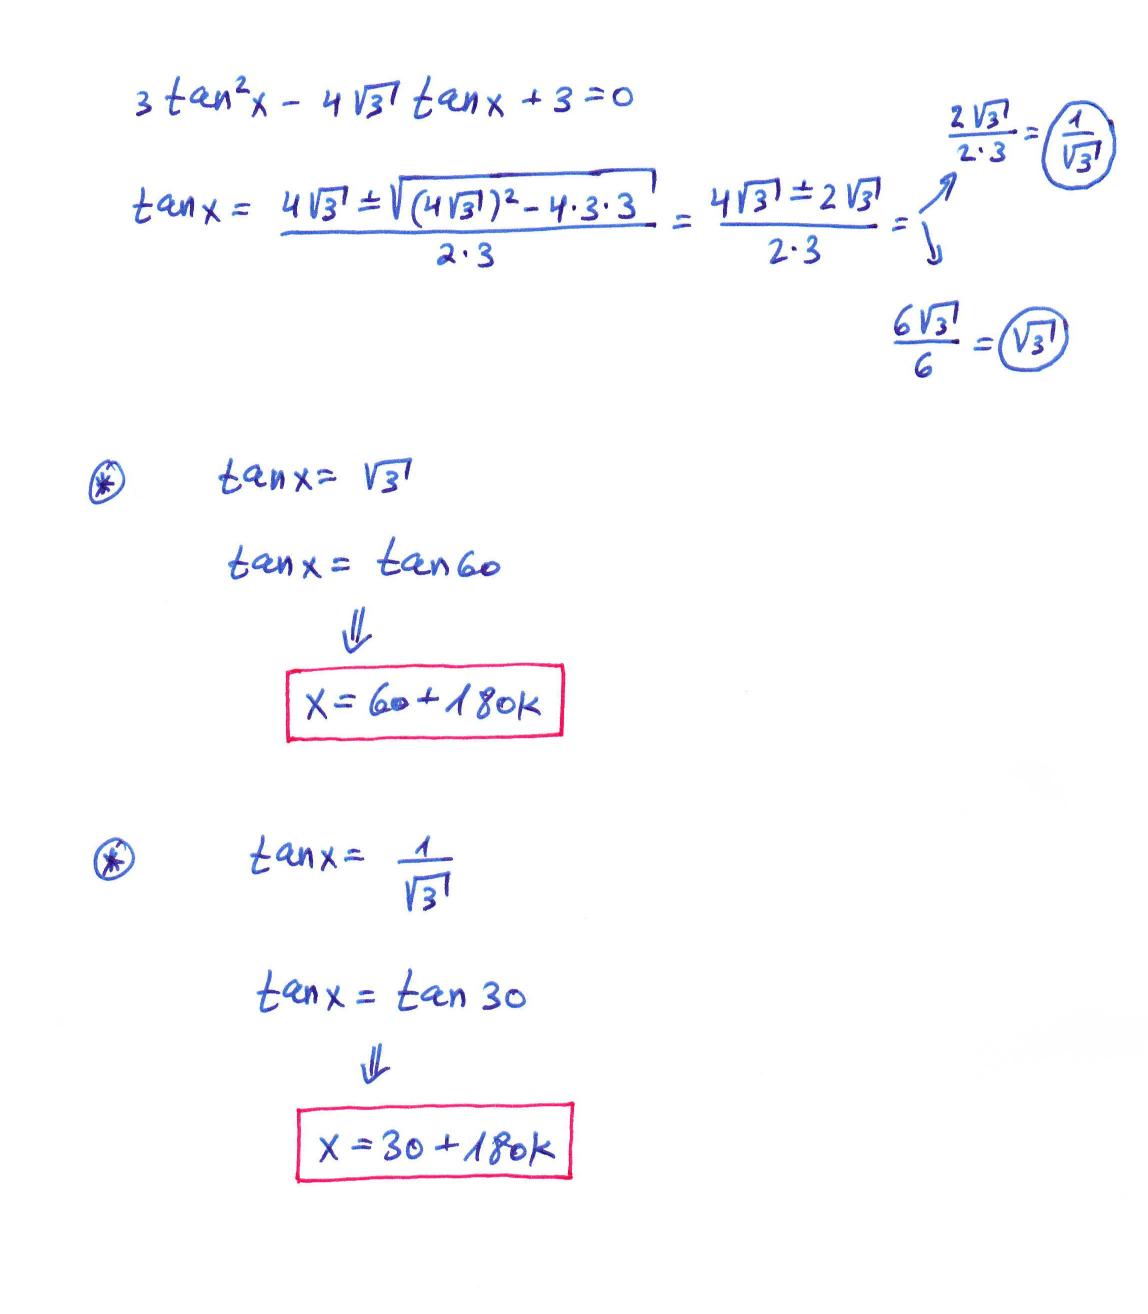 3 tan²x − 4√3 tanx + 3 = 0
tanx = (4√3 ± √((4√3)² − 4·3·3))/(2·3) = (4√3 ± 2√3)/(2·3) =
↗ (2√3)/(2·3) = 1/√3
↘ (6√3)/6 = √3
* tanx = √3
tanx = tan60
⇓
x = 60 + 180k
* tanx = 1/√3
tanx = tan 30
⇓
x = 30 + 180k